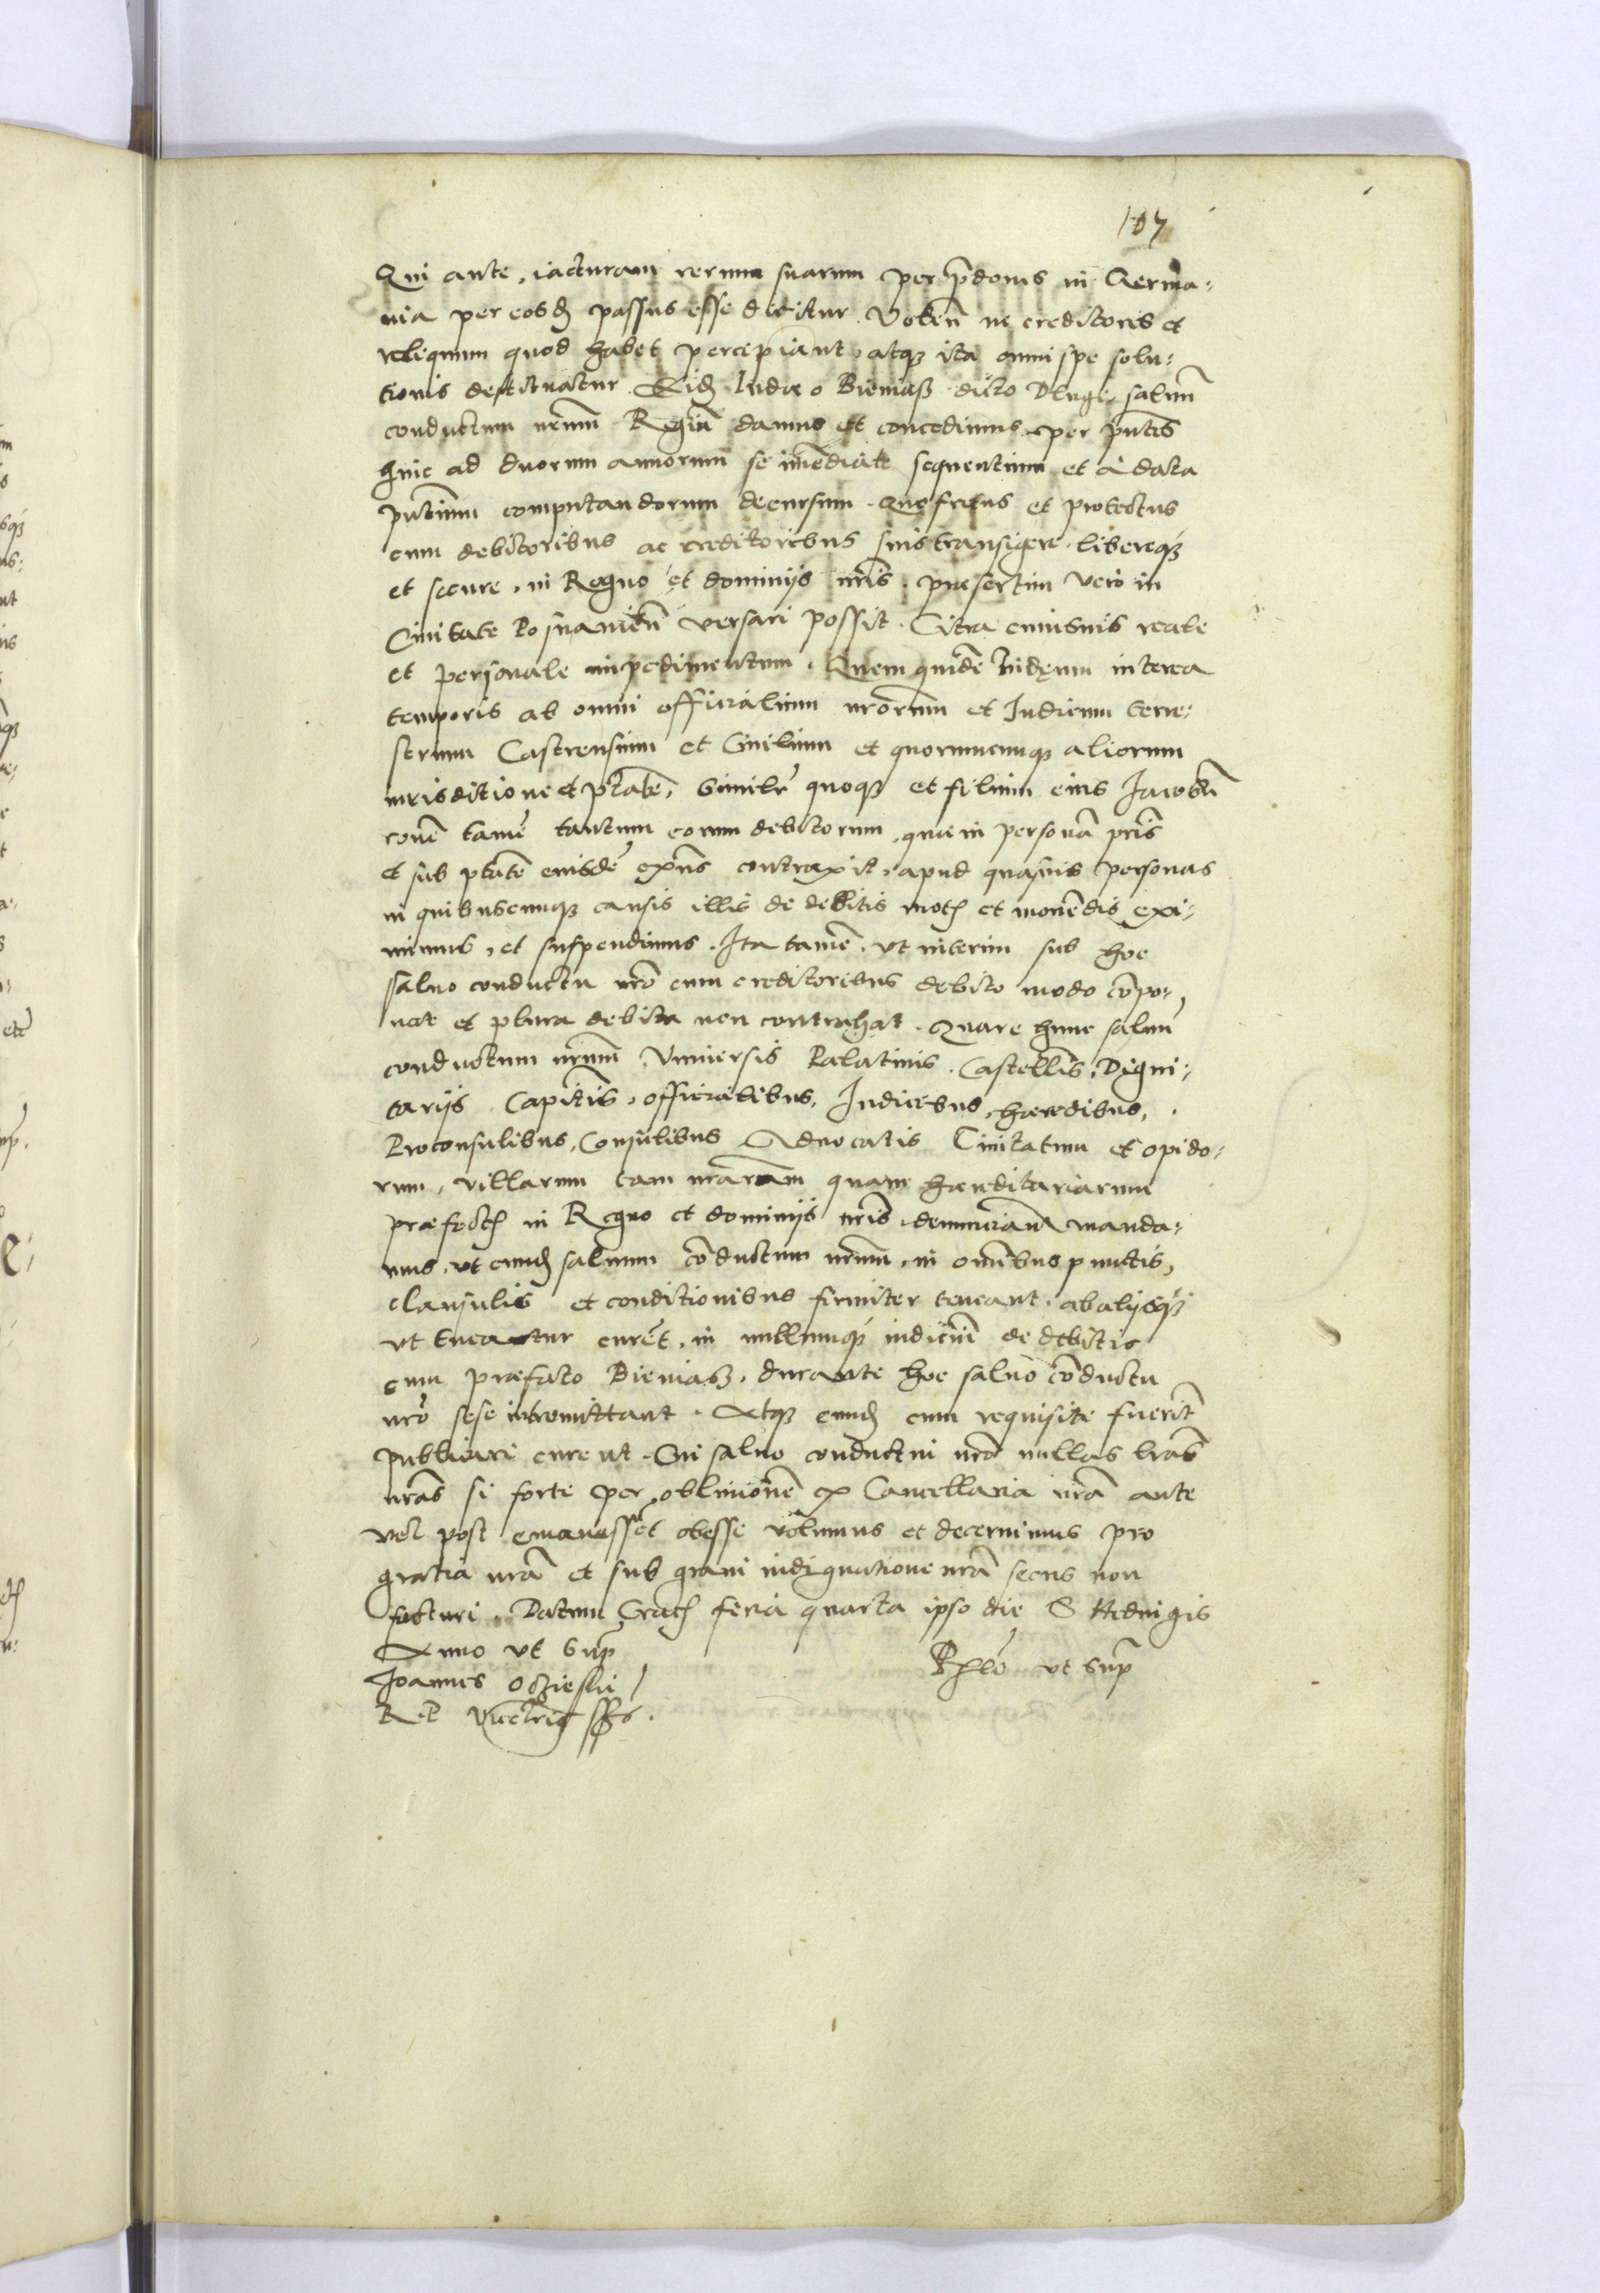 107
Qui ante, iacturam rerum suarum per p̄dones in Germa-
nia per eosdē passus esse dicitur. Volen̄ ne creditores et
reliquum quod habet percipiant, atq̨ ita omni spe solu-
tionis destituatur. Eidē Iudaeo Bieniasz dicto Dlugi, saluū
conductum nrūm Regiū damus et concedimus, per pn̄tes
hinc ad duorum annorum se im̄ediate sequentium et à data
pn̄tium computandorum decursum. Quo fretus et protectus
cum debitoribus ac creditoribus suis transigere, libereq̨
et secure, in Regno et dominijs nrīs, praesertim vero in
Ciuitate Posnanien̄ versari possit. Citra cuiusuis reale
et personale impedimentum. Quem quidē Iudęum interea
temporis ab omni officialium nrōrum et Iudicum terre-
strium Castrensium et Ciuilium et quorumcunq̨ aliorum
iurisditione et ptāte, similr̄ quoq̨ et filium eius Iacobū
ronē tamē tantum eorum debitorum, quae in personā prīs
et sub ptāte eiusdē exn̄s contraxit, apud quasuis personas
in quibuscunq̨ causis illis de debitis motis et mouēdis exi-
mimus, et suspendimus. Ita tamē, ut interim sub hoc
saluo conductu nrō cum creditoribus debito modo cōpo-
nat et plura debita non contrahat. Quare hunc saluū
conductum nrūm Vniuersis Palatinis, Castellīs, Digni-
tarijs Capitīs, officialibus, Iudicibus, haeredibus,
Proconsulibus, Consulibus Aduocatis Ciuitatum et opido-
rum, villarum tam nrārum quam haereditariarum
praefectis in Regno et dominijs nrīs denunciān manda-
mus, ut eundē saluum cōductum nrūm, in omībus punctis,
clausulis et conditionibus firmiter teneant, ab alijsq̨
ut teneatur curēt, in nullumq̨ iudiciū de debitis
cum praefato Bieniasz, durante hoc saluo cōductu
nrō sese intromittant. Atq̨ eundē cum requisiti fuerīt
publicari curent. Cui saluo conductui nrō nullas lrās
nrās si forte per obliuionē ex Cancellaria nrā ante
vel post emanassēt obesse volumus et decernimus pro
gratia nrā et sub graui indignatione nrā secus non
facturi. Datum Crac̄ feria quarta ipso die S Heduigis
Anno ut sup̄
Ioannes Oczieski
R. P. Vicecn̄rius ss̄.
Rlō ut sup̄